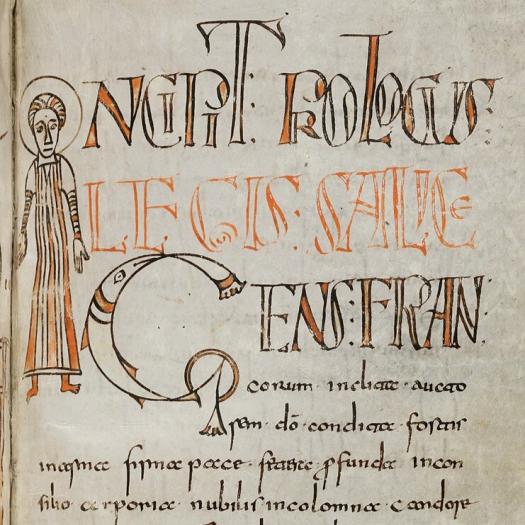 INCIPIT PROLOGUS
LEGIS: SALICE
GENS: FRAN
corum · inclita · aucto
rem · dō · condita · fortis
inarma firma pace · ꝓfunda incon
silio corporia · nubilis incolomna candore